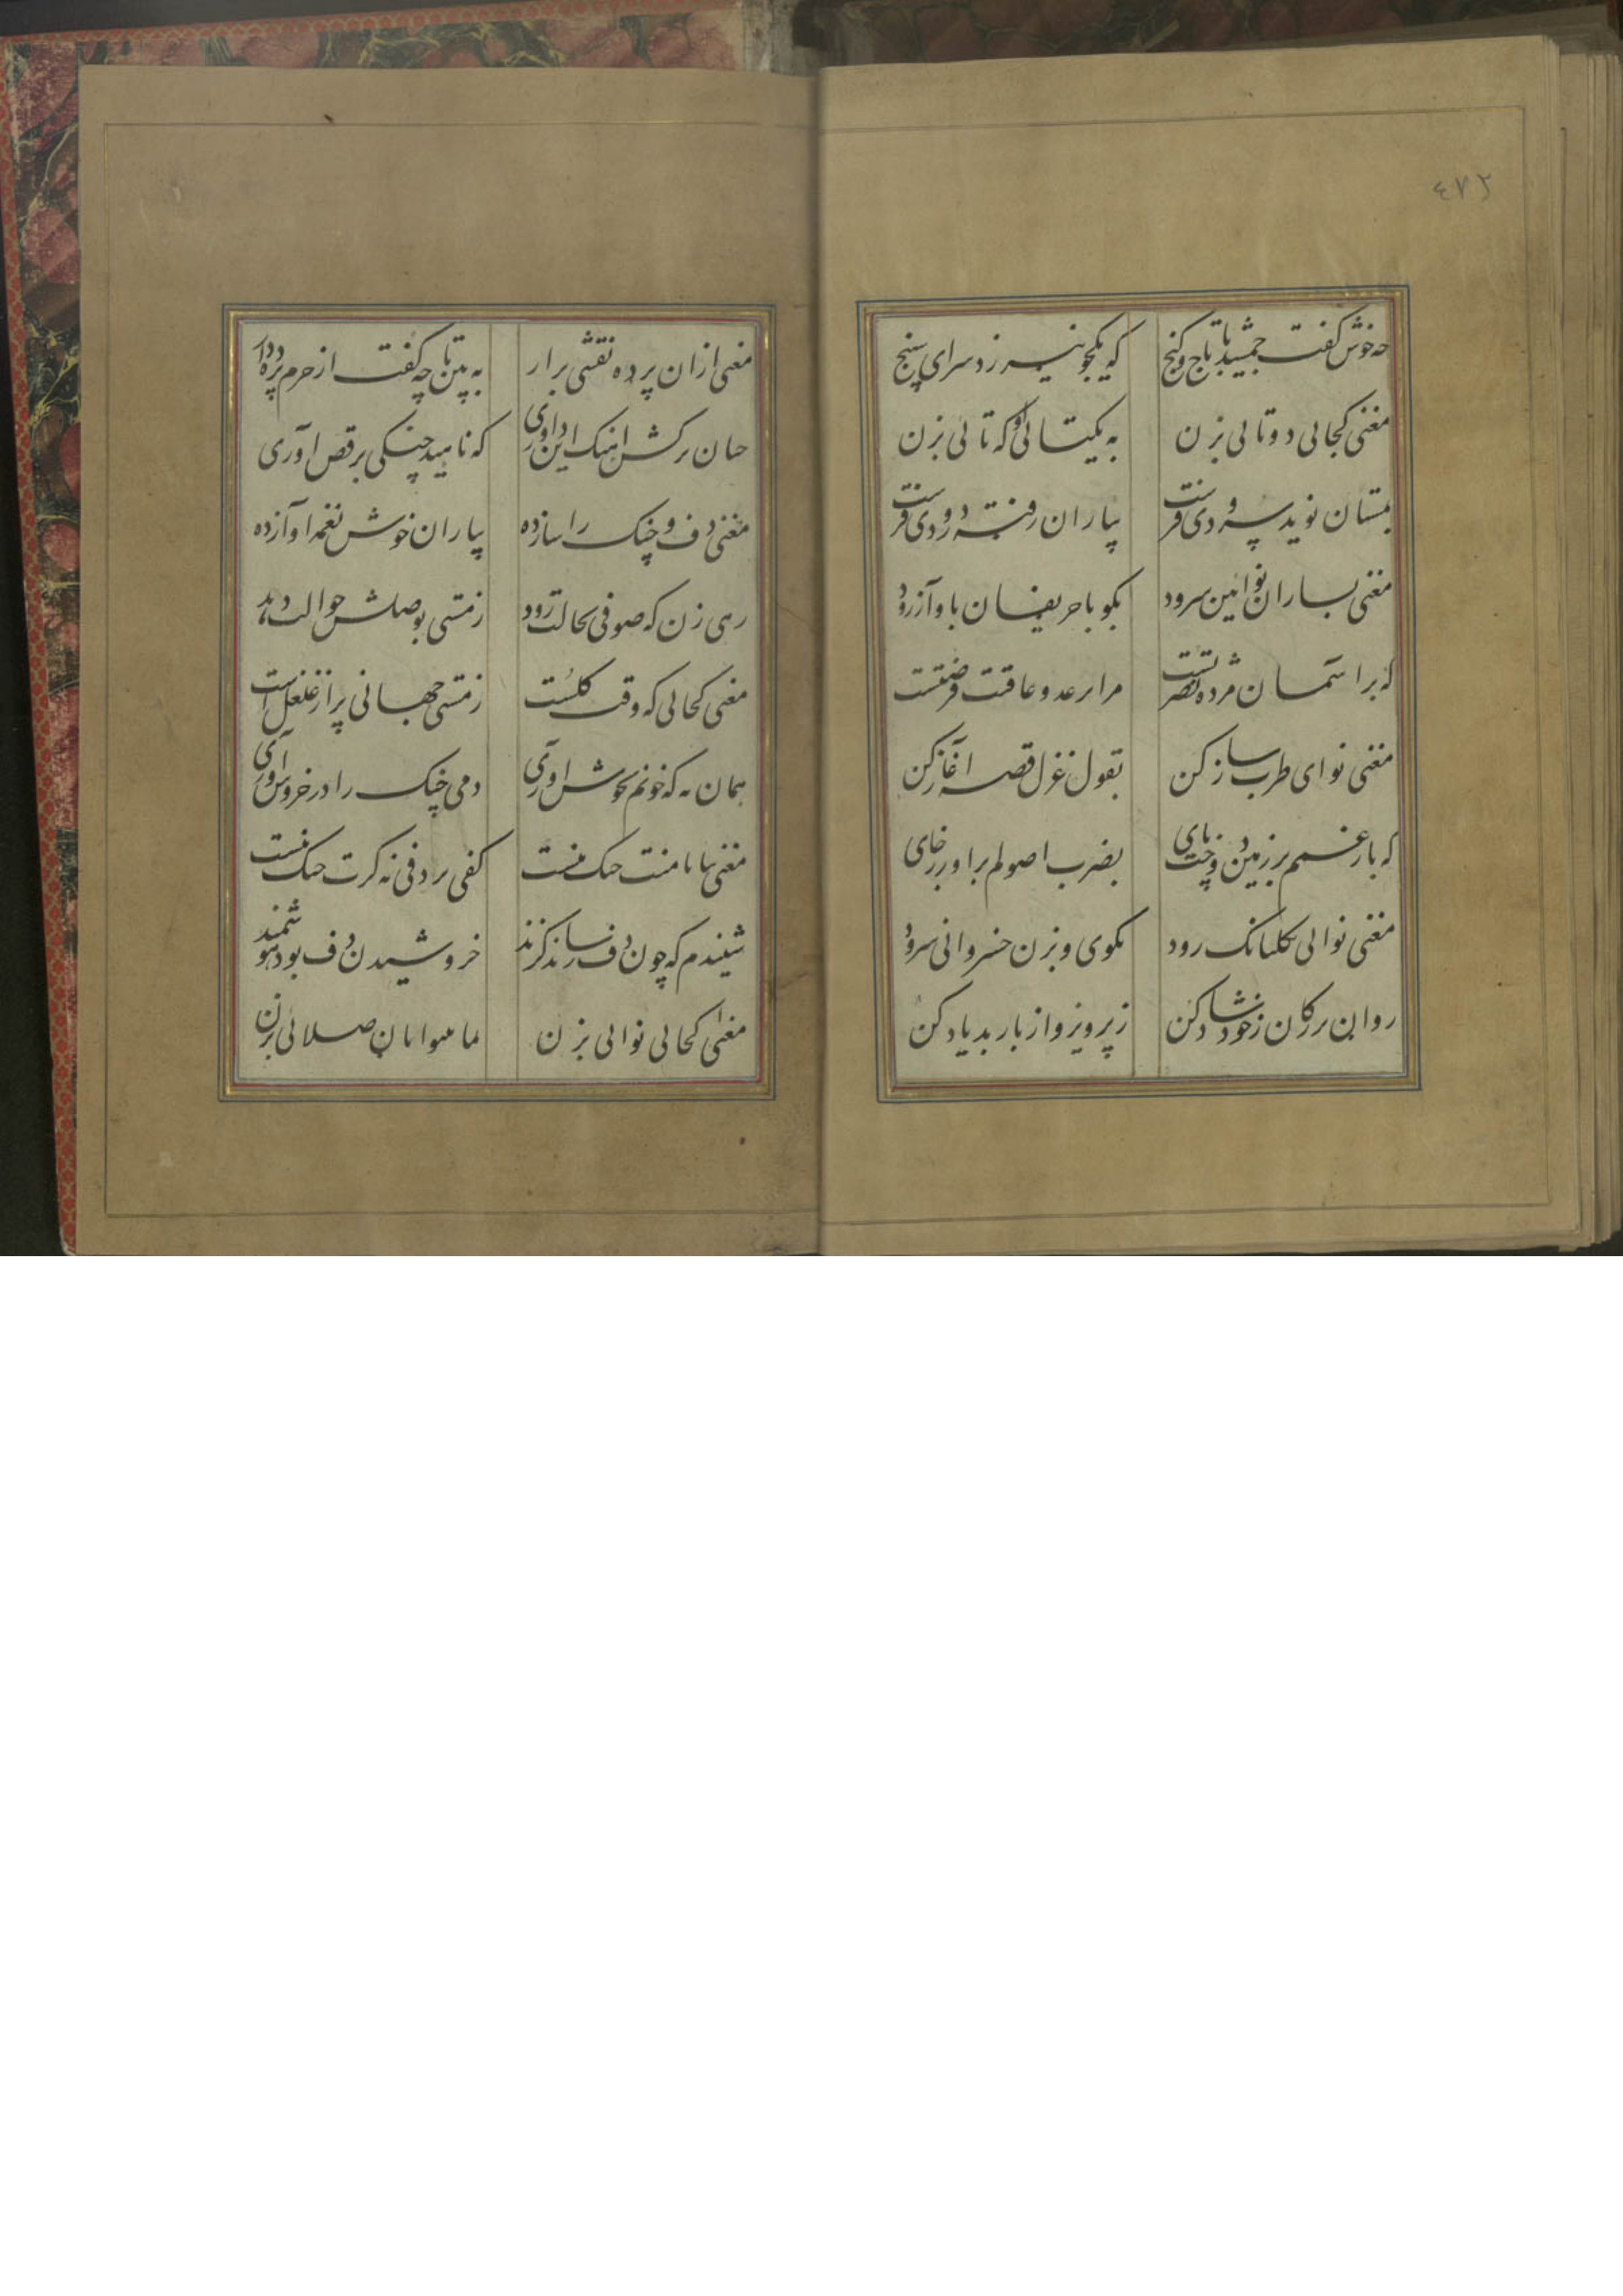 ٤٧٢
چه خوش گفت جمشید با تاج و گنج که یکجو نیرزد سرای سپنج
مغنی کجائی دوتائی بزن به یکتائی او که تائی بزن
بمستان نوید سرودی فرست بیاران رفته درودی فرست
مغنی بساز آن نوآیین سرود بگو با حریفان بآواز رود
که بر آسمان مژده نصرتست مرا بر عدو عاقبت فرصتست
مغنی نوای طرب ساز کن بقول و غزل قصه آغاز کن
که بار غمم بر زمین دوخت پای بضرب اصولم برآور ز جای
مغنی نوائی بگلبانگ رود بگوی و بزن خسروانی سرود
روان بزرگان ز خود شاد کن ز پرویز و از باربد یاد کن
مغنی ازان پرده نقشی برار به بین تا چه گفت از حرم پرده دار
چنان برکش آهنگ این داوری که ناهید چنگی برقص آوری
مغنی دف و چنگ را ساز ده بیاران خوش نغمه آواز ده
رهی زن که صوفی بحالت رود ز مستی بوصلش حوالت
مغنی کجائی که وقت گلست ز مستی جهانی پر از غلغل است
همان به که خونم بجوش آوری دمی چنگ را در خروش آوری
مغنی بیا با منت جنگ نیست کفی بر دفی نه گرت چنگ نیست
شنیدم که چون رساند گزند خروشیدن دف بود سودمند
مغنی کجائی نوائی بزن صلائی بزن